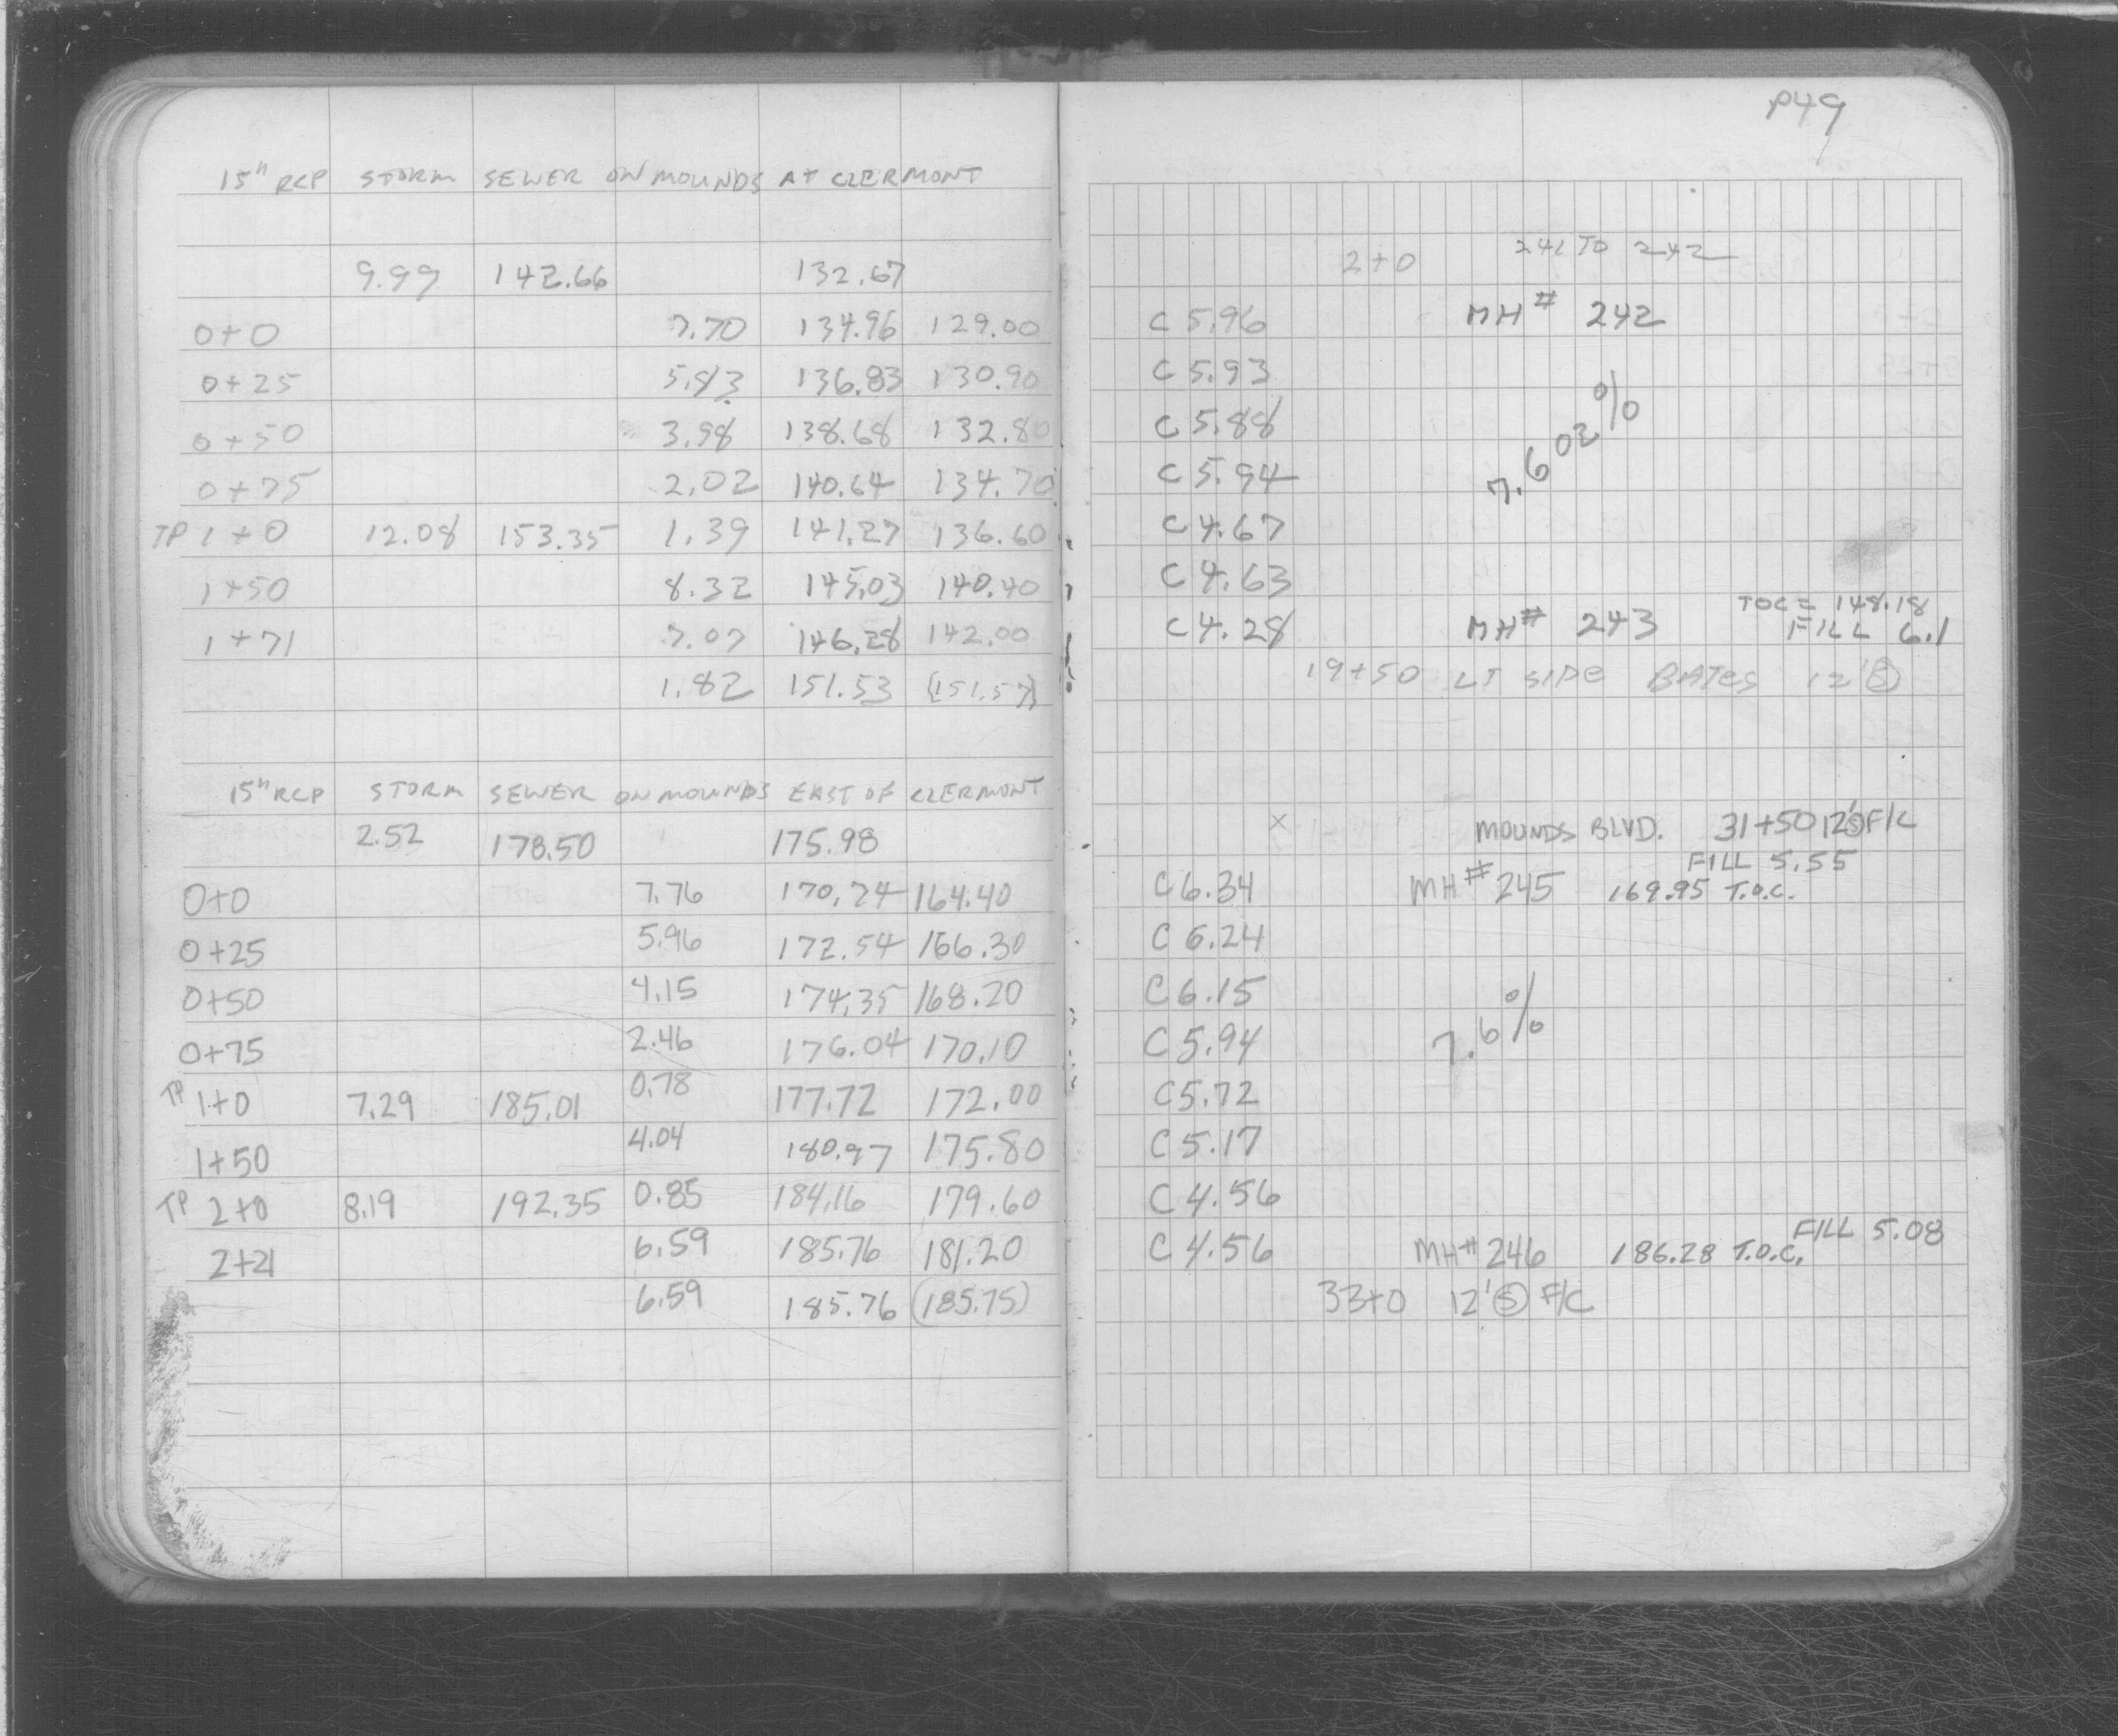 15" RCP STORM SEWER ON MOUNDS AT CLERMONT
9.99 142.66 132.67
0+0 7.70 134.96 129.00
0+25 5.83 136.83 130.90
0+50 3.98 138.68 132.80
0+75 2.02 140.64 134.70
TP 1+0 12.08 153.35 1.39 141.27 136.60
1+50 8.32 145.03 140.40
1+71 7.07 146.28 142.00
1.82 151.53 (151.57)
15" RCP STORM SEWER ON MOUNDS EAST OF CLERMONT
2.52 178.50 175.98
0+0 7.76 170.74 164.40
0+25 5.96 172.54 166.30
0+50 4.15 174.35 168.20
0+75 2.46 176.04 170.10
TP 1+0 7.29 185.01 0.78 177.72 172.00
1+50 4.04 180.97 175.80
TP 2+0 8.19 192.35 0.85 184.16 179.60
2+21 6.59 185.76 181.20
6.59 185.76 (185.75)
P49
2+0 241 TO 242
C 5.96 MH# 242
C 5.93
C 5.88 7.602%
C 5.94
C 4.67
C 4.63
TOC = 148.18
C 4.28 MH# 243 FILL 6.1
19+50 LT SIDE BATES 12' Ⓢ
x MOUNDS BLVD. 31+50 12'Ⓢ F/C
FILL 5.55
C 6.34 MH# 245 169.95 T.O.C.
C 6.24
C 6.15
C 5.94 7.6%
C 5.72
C 5.17
C 4.56
FILL 5.08
C 4.56 MH# 246 186.28 T.O.C.
33+0 12' Ⓢ F/C